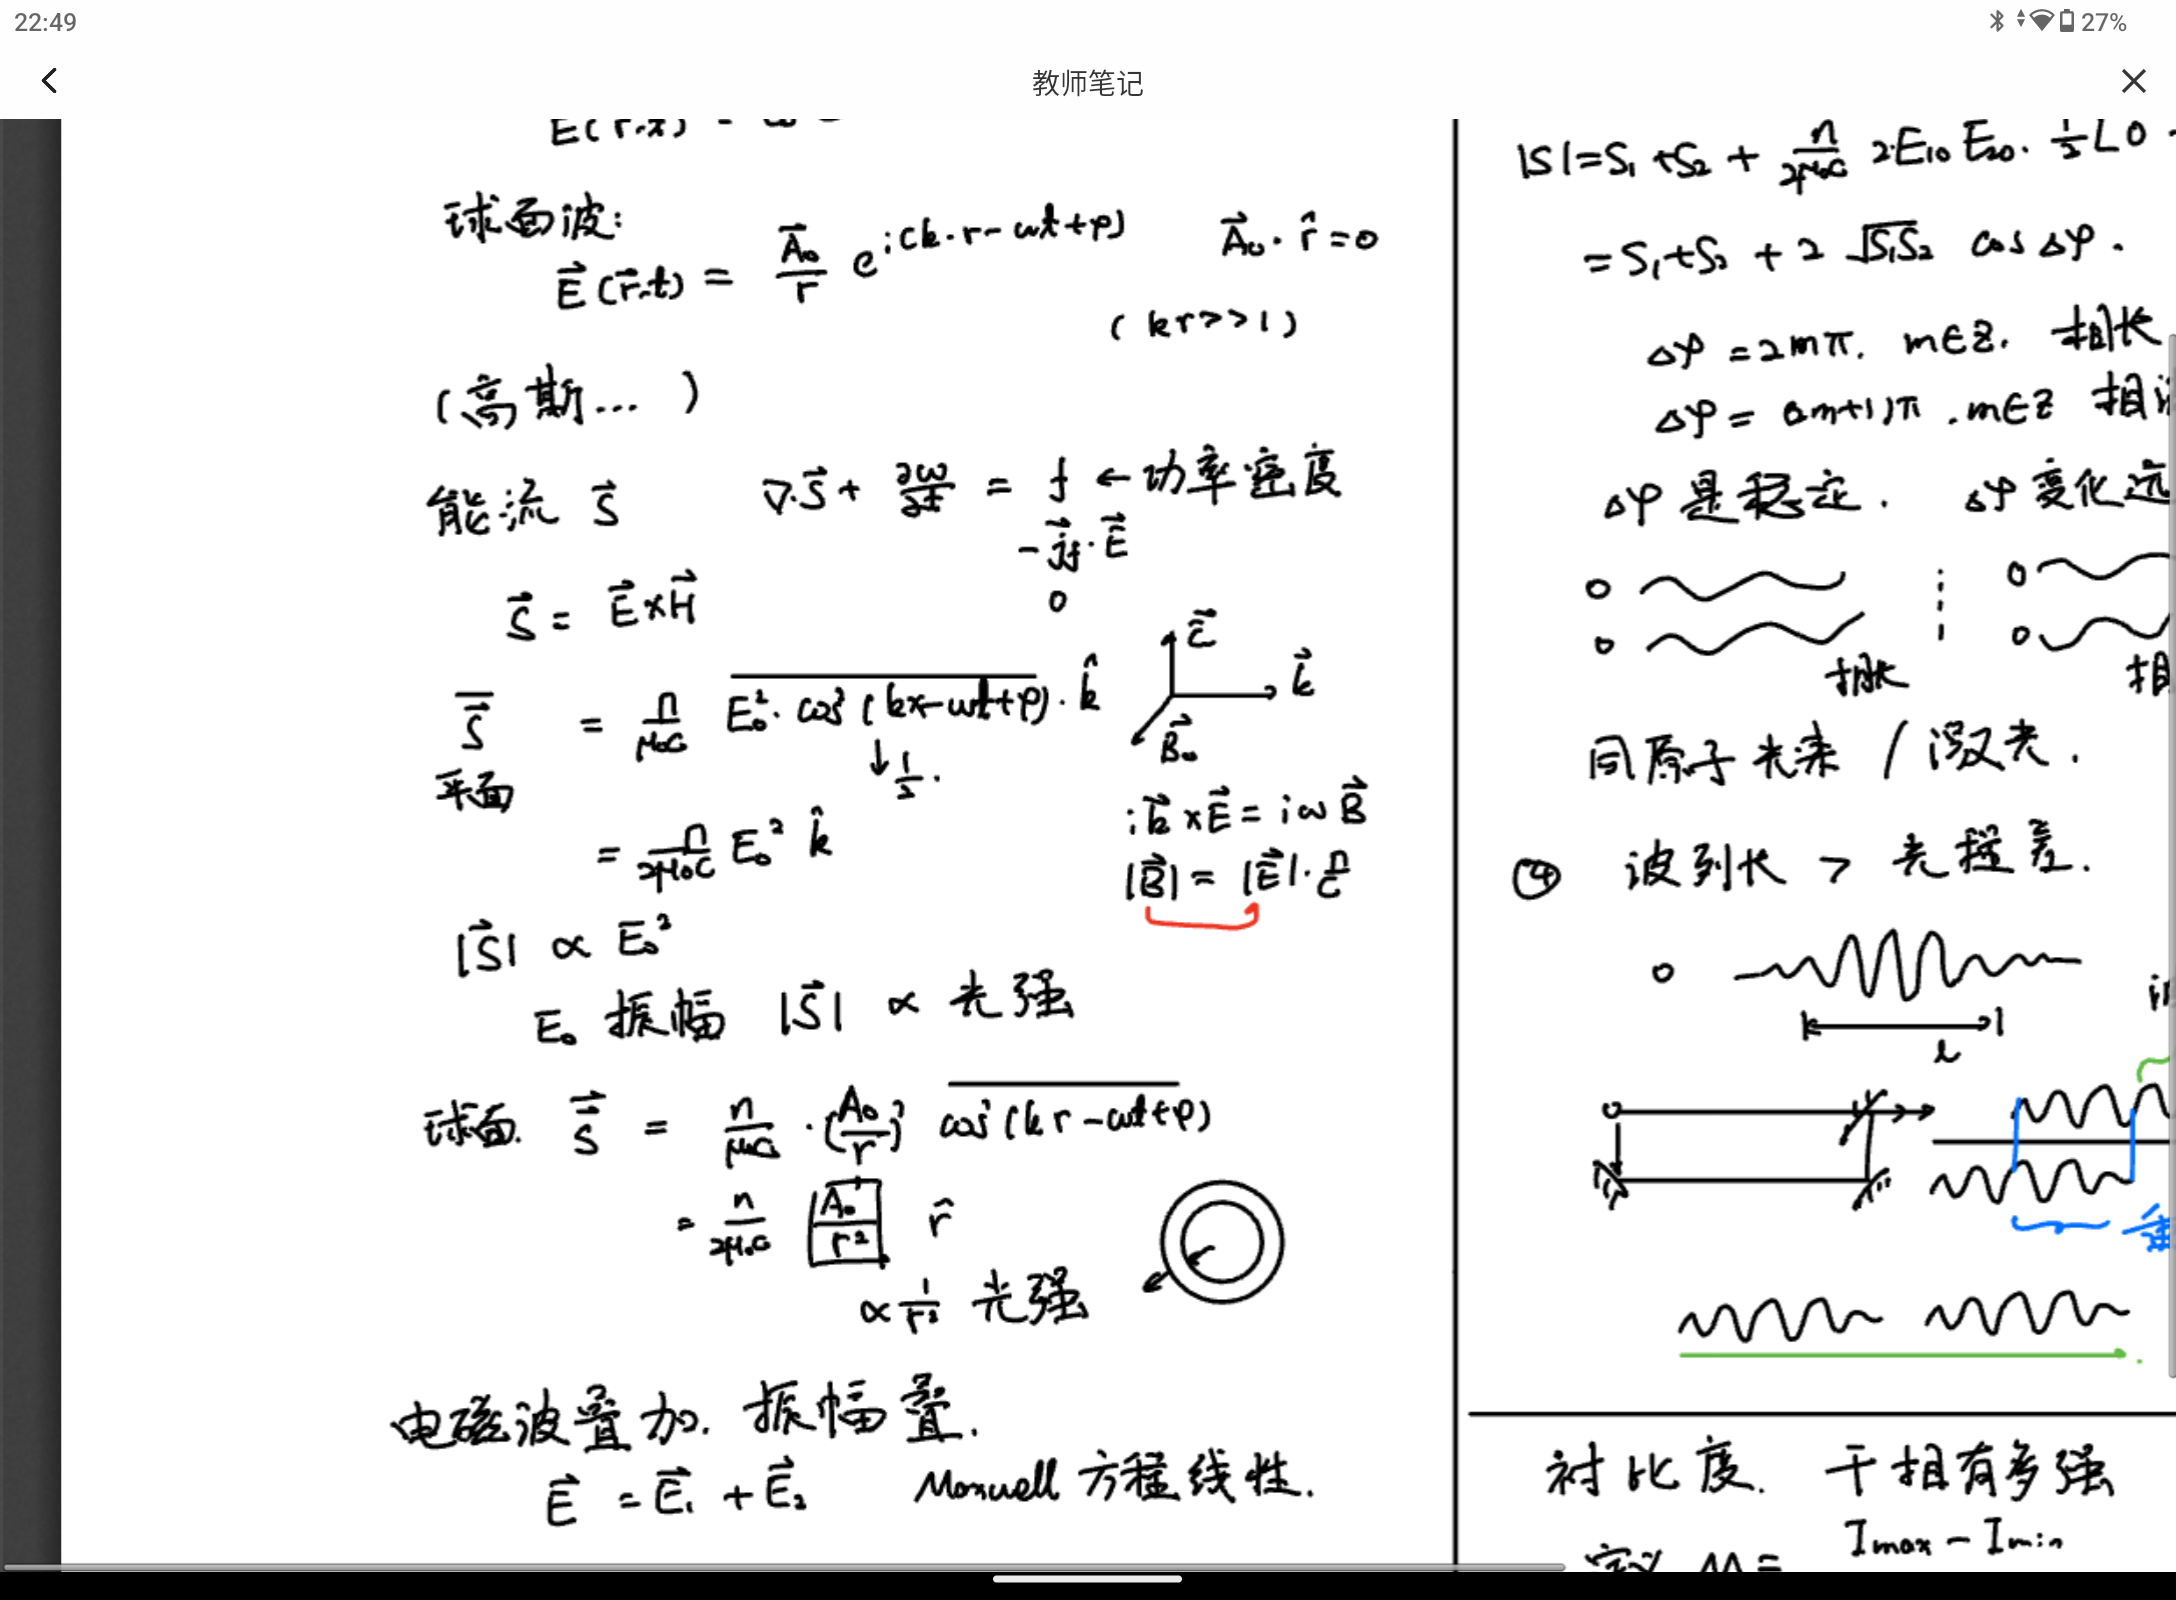 22:49
27%
教师笔记
球面波:
E⃗(r⃗.t) = A⃗₀/r e^{i(k·r-ωt+φ)} A⃗₀·r̂=0
(kr>>1)
(高斯...)
能流 S⃗ ∇·S⃗ + ∂ω/∂t = f ← 功率密度
-j⃗f·E⃗
0
S⃗ = E⃗×H⃗
E⃗
k⃗
S⃗ = n/μ₀c E₀²·cos²(kx-ωt+φ)·k̂
B⃗
平面
↓ 1/2.
= n/2μ₀c E₀² k̂
ik⃗×E⃗ = iωB⃗
|B⃗| = |E⃗|·n/c
|S⃗| ∝ E₀²
E₀ 振幅 |S⃗| ∝ 光强
球面. S⃗ = n/μ₀c ·(A₀/r)² cos²(kr-ωt+φ)
= n/2μ₀c A₀/r² r̂
∝ 1/r² 光强
电磁波叠加. 振幅叠.
E⃗ = E⃗₁ + E⃗₂ Maxwell 方程线性.
|S|=S₁+S₂ + n/2μ₀c 2·E₁₀E₂₀·1/2 [0
=S₁+S₂ + 2 √S₁S₂ cos Δφ.
Δφ = 2mπ. m∈Z. 相长
Δφ = (2m+1)π .m∈Z 相
Δφ 是稳定. Δφ 变化远
相长
相
同原子光来 / 激光.
④ 波列长 > 光程差.
l
衬比度. 干相有多强
定义 M = Imax - Imin